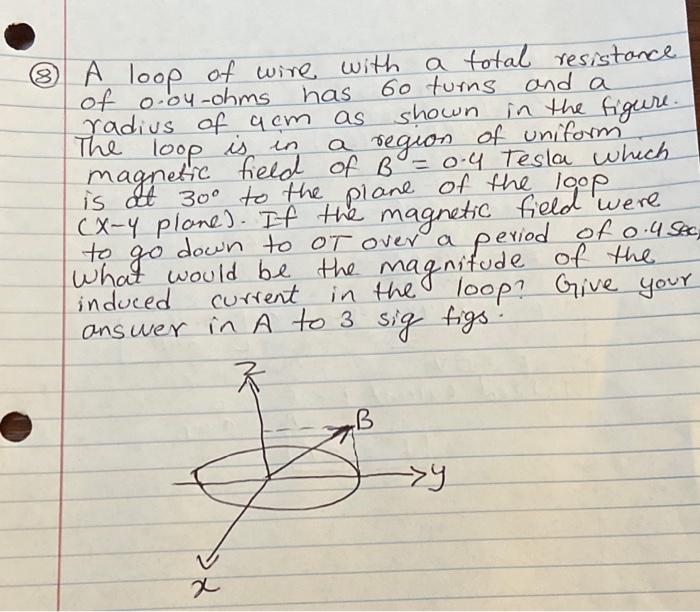 ⑧ A loop of wire with a total resistance
of 0.04-ohms has 60 turns and a
radius of 4cm as shown in the figure.
The loop is in a region of uniform
magnetic field of B = 0.4 Tesla which
is at 30° to the plane of the loop
(x-y plane). If the magnetic field were
to go down to 0T over a period of 0.4 sec,
What would be the magnitude of the
induced current in the loop? Give your
answer in A to 3 sig figs.
z
B
y
x